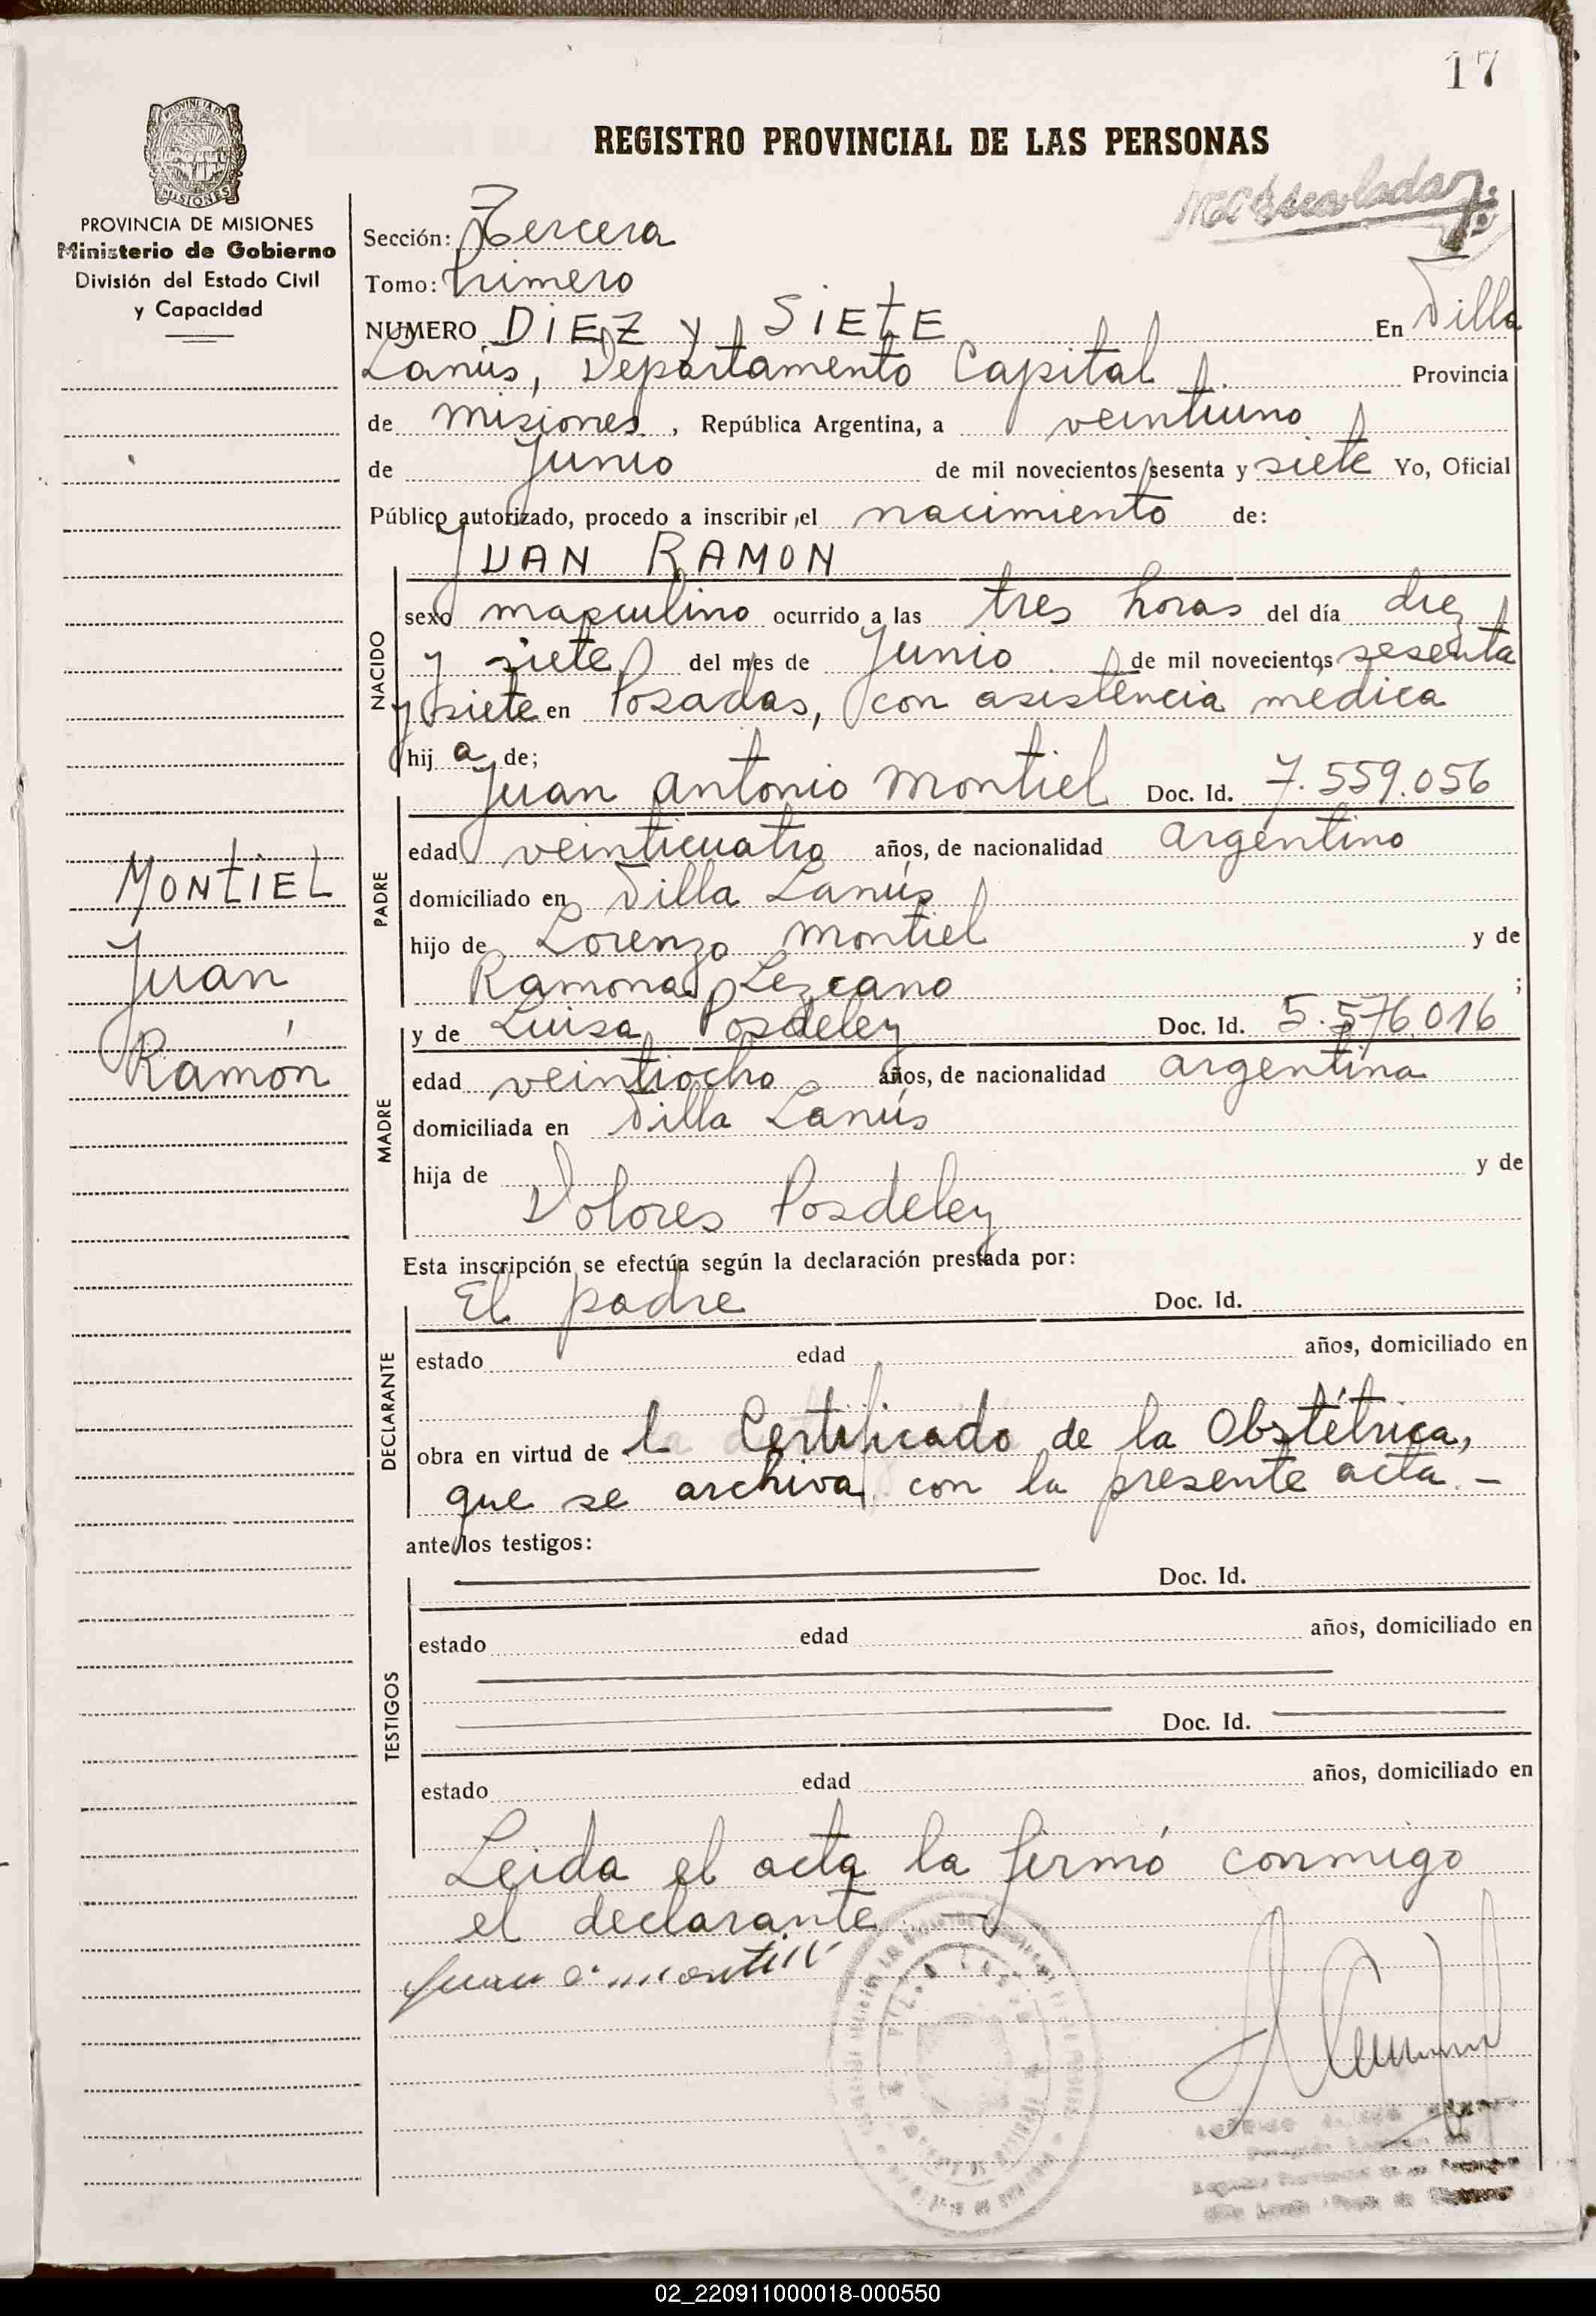 17
REGISTRO PROVINCIAL DE LAS PERSONAS
PROVINCIA DE MISIONES
Ministerio de Gobierno
División del Estado Civil
y Capacidad
Sección: Tercera
Tomo: Primero
NUMERO DIEZ y SIETE En Villa
Lanús, Departamento Capital Provincia
de Misiones, República Argentina, a veintiuno
de Junio de mil novecientos sesenta y siete Yo, Oficial
Público autorizado, procedo a inscribir el nacimiento de:
JUAN RAMON
NACIDO
sexo masculino ocurrido a las tres horas del día diez
y siete del mes de Junio de mil novecientos sesenta
y siete en Posadas, con asistencia médica
hij a de;
Juan Antonio Montiel Doc. Id. 7.559.056
PADRE
edad veinticuatro años, de nacionalidad argentino
domiciliado en Villa Lanús
hijo de Lorenzo Montiel y de
Ramona Lezcano ;
y de Luisa Posdeley Doc. Id. 5.576.016
MADRE
edad veintiocho años, de nacionalidad argentina
domiciliada en Villa Lanús
hija de y de
Dolores Posdeley
MONTIEL
Juan
Ramón
Esta inscripción se efectúa según la declaración prestada por:
El padre Doc. Id.
DECLARANTE
estado edad años, domiciliado en
obra en virtud de l Certificado de la Obstétrica,
que se archiva con la presente acta. -
ante los testigos:
Doc. Id.
TESTIGOS
estado edad años, domiciliado en
Doc. Id.
estado edad años, domiciliado en
Leida el acta la firmó conmigo
el declarante. -
Juan A. Montiel
02_220911000018-000550